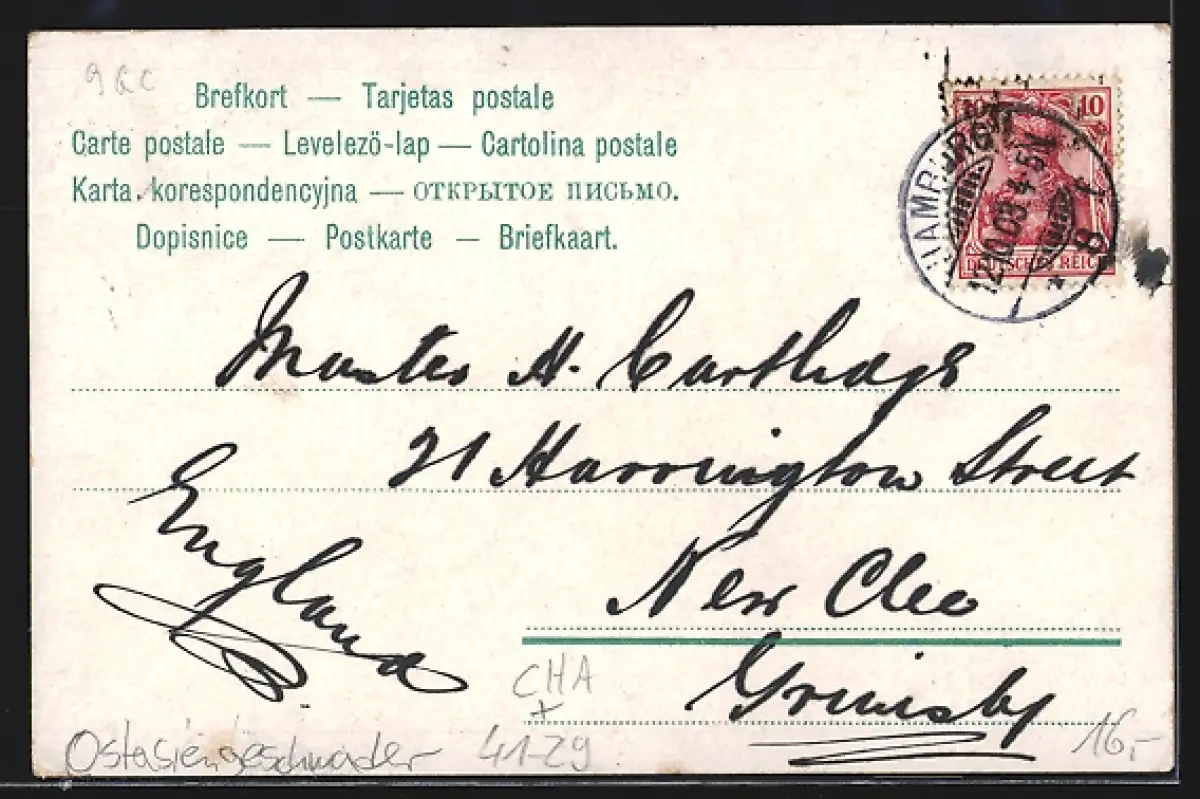 9 QC
Brefkort — Tarjetas postale
Carte postale — Levelezö-lap — Cartolina postale
Karta korespondencyjna — ОТКРЫТОЕ ПИСЬМО.
Dopisnice — Postkarte — Briefkaart.
10 10
DEUTSCHES REICH
HAMBURG
12.10.03. 4-5N
8
Master H. Carthage
21 Harrington Street
New Clee
Grimsby
England
CHA
+
Ostasiengeschwader 41-29
16,-